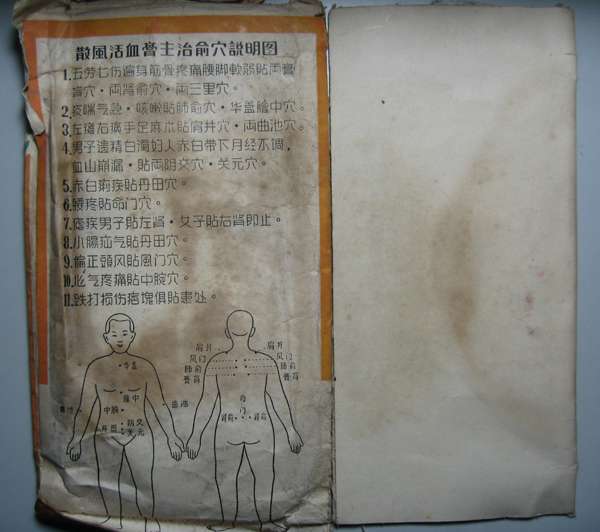 散風活血膏主治俞穴説明图
1.五劳七伤遍身筋骨疼痛腰脚軟弱貼両膏
肓穴·両腎俞穴·両三里穴。
2.痰喘气急·咳嗽貼肺俞穴·华盖膻中穴。
3.左瘫右痪手足麻木貼肩井穴·両曲池穴。
4.男子遗精白濁妇人赤白带下月经不调,
血山崩漏·貼両阴交穴·关元穴。
5.赤白痢疾貼丹田穴。
6.腰疼貼命门穴。
7.疟疾男子貼左肾·女子貼右肾即止。
8.小腸疝气貼丹田穴。
9.偏正頭风貼風门穴。
10.心气疼痛貼中脘穴。
11.跌打损伤痞塊俱貼患处。
肩井 肩井
风门 风门
肺俞 肺俞
膏肓 膏肓
华盖
膻中
中脘
曲池
丹田
关元
命
门
肾俞 肾俞